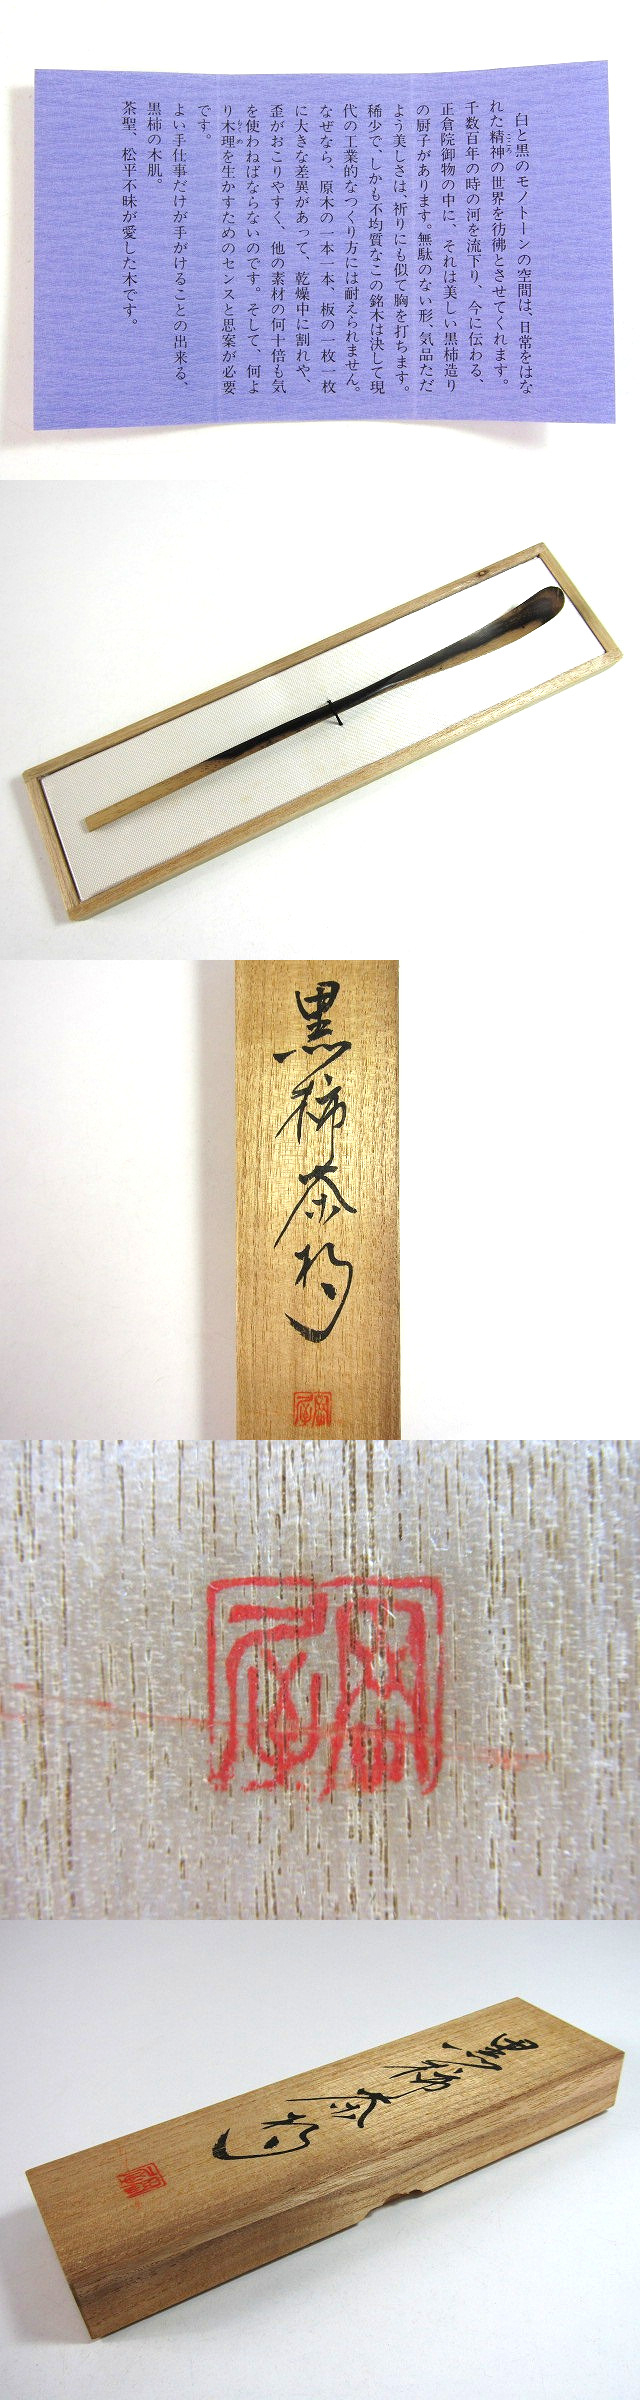 白と黒のモノトーンの空間は、日常をはな
れた精神の世界を彷彿とさせてくれます。
こころ
千数百年の時の河を流下り、今に伝わる、
正倉院御物の中に、それは美しい黒柿造り
の厨子があります。無駄のない形、気品ただ
よう美しさは、祈りにも似て胸を打ちます。
稀少で、しかも不均質なこの銘木は決して現
代の工業的なつくり方には耐えられません。
なぜなら、原木の一本一本、板の一枚一枚
に大きな差異があって、乾燥中に割れや、
歪がおこりやすく、他の素材の何十倍も気
を使わねばならないのです。そして、何よ
り木理を生かすためのセンスと思案が必要
もくめ
です。
よい手仕事だけが手がけることの出来る、
黒柿の木肌。
茶聖、松平不昧が愛した木です。
黒柿茶杓
黒柿茶杓